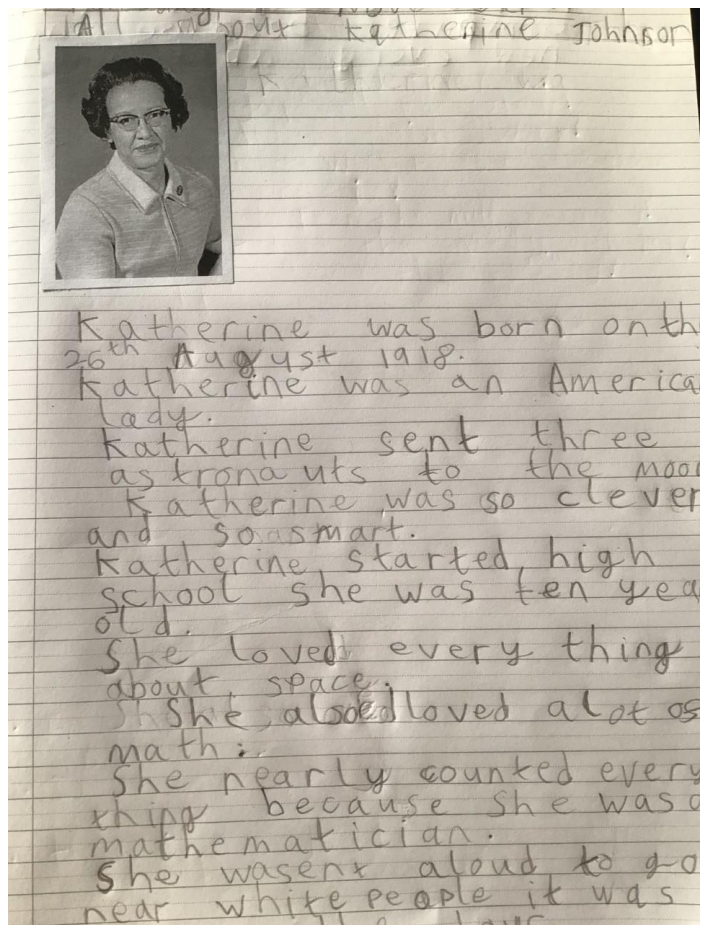 All about Katherine Johnson
Katherine was born on th
26th August 1918.
Katherine was an America
lady.
Katherine sent three
astronauts to the moo
Katherine was so clever
and so smart.
Katherine started high
school she was ten yea
old.
She loved every thing
about space.
She also loved alot os
math.
She nearly counted every
thing because she was a
mathematician.
She wasent aloud to go
near white people it was